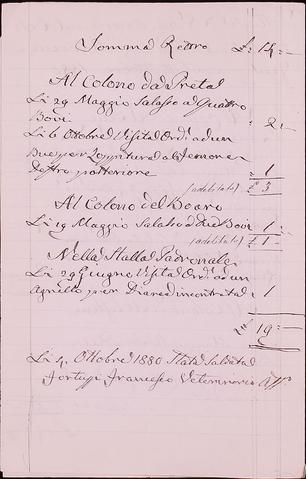 Somma Retro £: 14:
Al Colono da Preta
Li 29 Maggio Salasso a Quattro
Bovi 2:
Li 6 Ottobre Visita Ord. ad un
Bue per Zoppitura al Femore
Destro posteriore 1
(addebitato) £ 3
Al Colono del Boaro
Li 19 Maggio Salasso a due Bovi 1:
(addebitato) £ 1
Nella Stalla Padronale
Li 29 Giugno Visita Ord. ad un
Agnello per 1
19
Li 4 Ottobre 1880 Stata Saldata
Francesco Veterinario